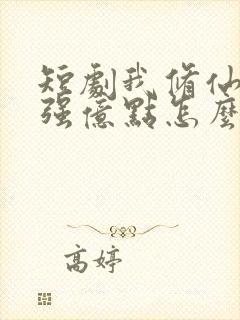 短劇我修仙
强億點怎麼
高婷